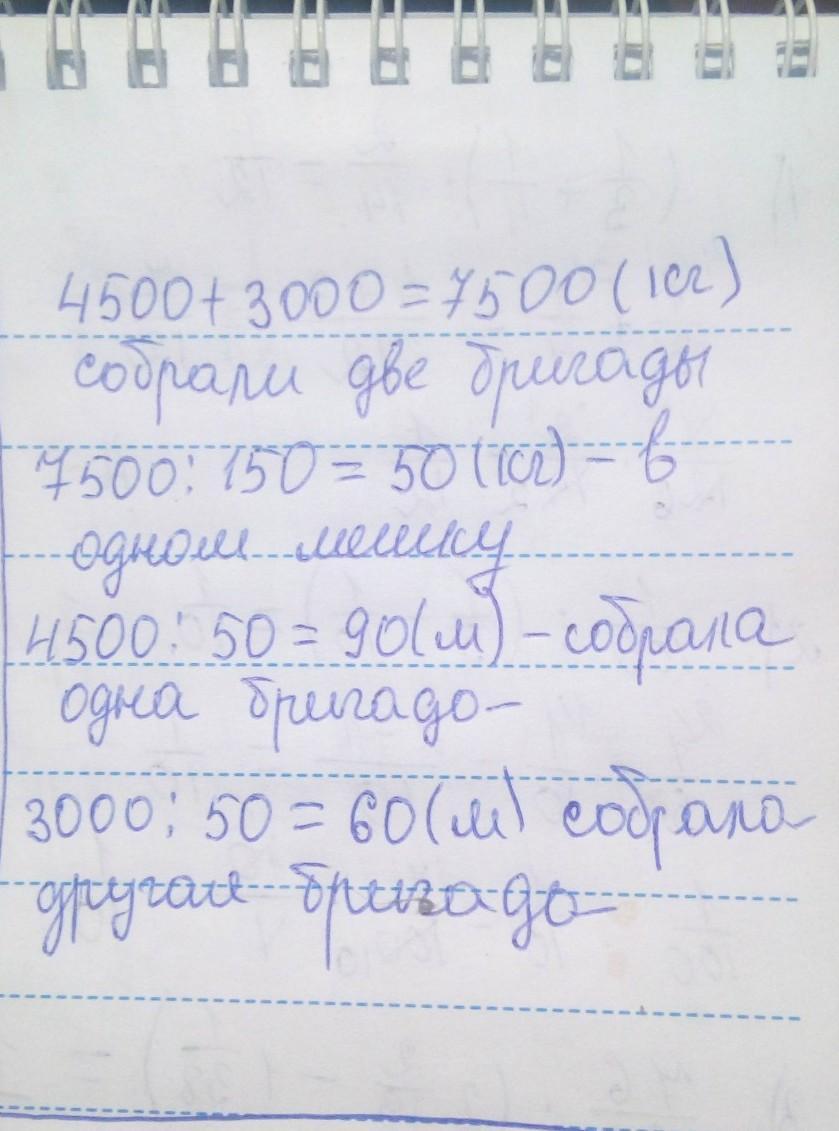 4500+3000=7500(кг)
собрали две бригады
7500:150=50(кг)-в
одном мешку
4500:50=90(м)-собрала
одна бригада
3000:50=60(м) собрала
другая бригада